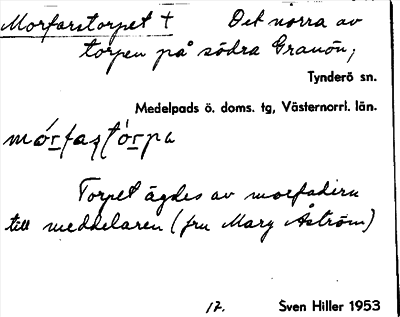 Morfarstorpet + Det norra av
torpen på södra Granön,
Tynderö sn.
Medelpads ö. doms. tg, Västernorrl. län.
Torpet ägdes av morfadern
till meddelaren (fru Mary Åström)
17. Sven Hiller 1953